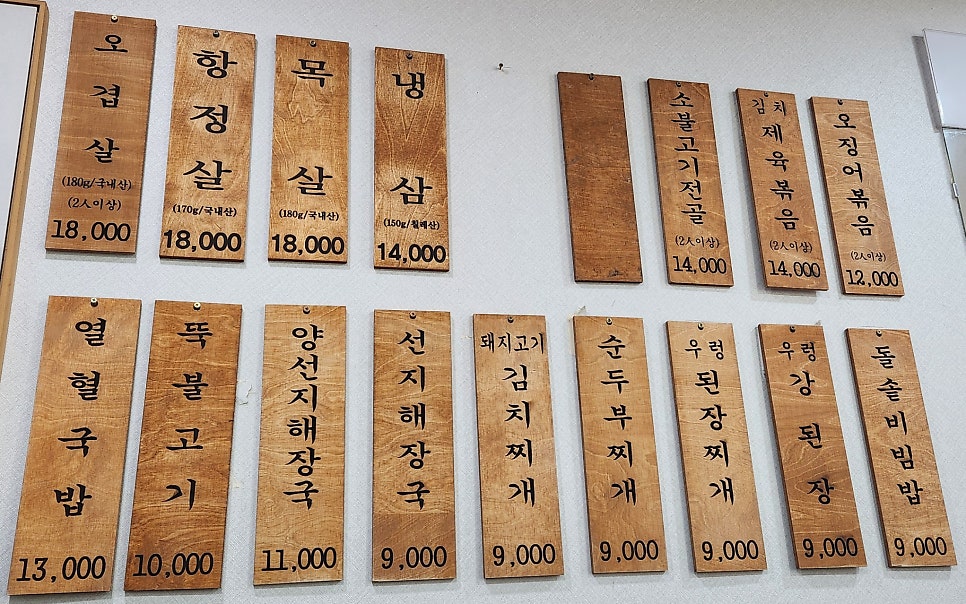 오겹살
(180g/국내산)
(2人이상)
18,000
항정살
(170g/국내산)
18,000
목살
(180g/국내산)
18,000
냉삼
(150g/칠레산)
14,000
소불고기전골
(2人이상)
14,000
김치
제육볶음
(2人이상)
14,000
오징어볶음
(2人이상)
12,000
열혈국밥
13,000
뚝불고기
10,000
양선지해장국
11,000
선지해장국
9,000
돼지고기
김치찌개
9,000
순두부찌개
9,000
우렁
된장찌개
9,000
우렁
강된장
9,000
돌솥비빔밥
9,000